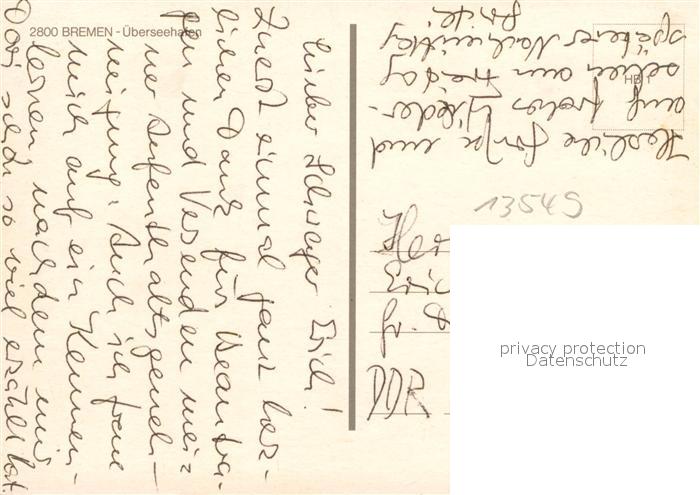 2800 BREMEN - Überseehafen
Lieber Schwager Erich!
Zuerst einmal ganz herz-
lichen Dank für Beantra-
gen und Versenden mei-
ner Aufenthaltsgeneh-
migung. Auch ich freue
mich auf ein Kennen-
lernen, nachdem mir
Dori schon so viel erzählt hat.
Herzliche Grüße und
auf frohes Wieder-
sehen am Freitag
späterer Nachmittag
HB 1
13549
Her
Eric
Gr.
DDR
privacy protection
Datenschutz